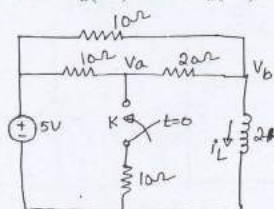 10Ω
10Ω Va 20Ω Vb
5V K t=0 iL
10Ω